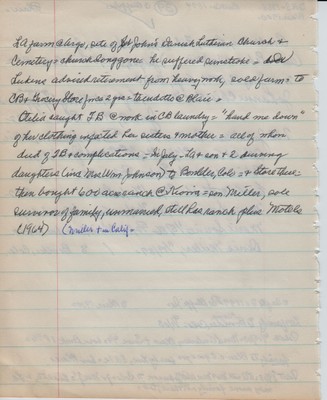 LA farm @ Argo, site of St John's Danish Lutheran Church &
Cemetery = church long gone he suffered sunstroke =
Lukens advised retirement from heavy work, sold farm = to
CB + Grocery Store 2 yrs = to @ Blair =
Clelia caught TB @ work in CB laundry = "hand me down"
of her clothing infected her sisters & mother = all of whom
died of TB & complications = In July - LA + son & 2 surviving
daughters (inc Mrs Wm. Johnson) to Boulder, Colo = & Store there
then bought 600 acre ranch @ Kiowa = son Miller, sole
survivor of family, unmarried, still has ranch plus Motels
(1964) (Miller + in Calif.